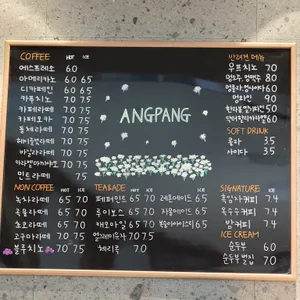 COFFEE HOT ICE
에스프레소 6.0
아메리카노 6.0 6.5
디카페인 6.0 6.5
카푸치노 7.0 7.5
카페라떼 7.0 7.5
카페모카 7.0 7.5
돌체라떼 7.0 7.5
헤이즐넛라떼 7.0 7.5
바닐라라떼 7.0 7.5
카라멜마끼아또 7.0 7.5
민트라떼 7.5
ANGPANG
반려견 메뉴
우프치노 7.0
8.0
멍라인 9.0
5.0
6.0
SOFT DRINK
콜라 3.5
사이다 3.5
NON COFFEE HOT ICE
녹차라떼 6.5 7.0
곡물라떼 6.5 7.0
초코라떼 6.5 7.0
고구마라떼 7.0 7.5
블루치노 7.0 7.5
TEA&ADE HOT ICE
페퍼민트 6.5 7.0
루이보스 6.5 7.0
캐모마일 6.5 7.0
얼그레이 7.0 7.5
체리콕 7.0
레몬에이드 6.5
자몽에이드 6.5
복숭아아이스티 6.5
SIGNATURE HOT ICE
흑임자커피 7.4
옥수수커피 7.4
밤커피 7.4
ICE CREAM
순두부 6.0
순두부빙집 7.0